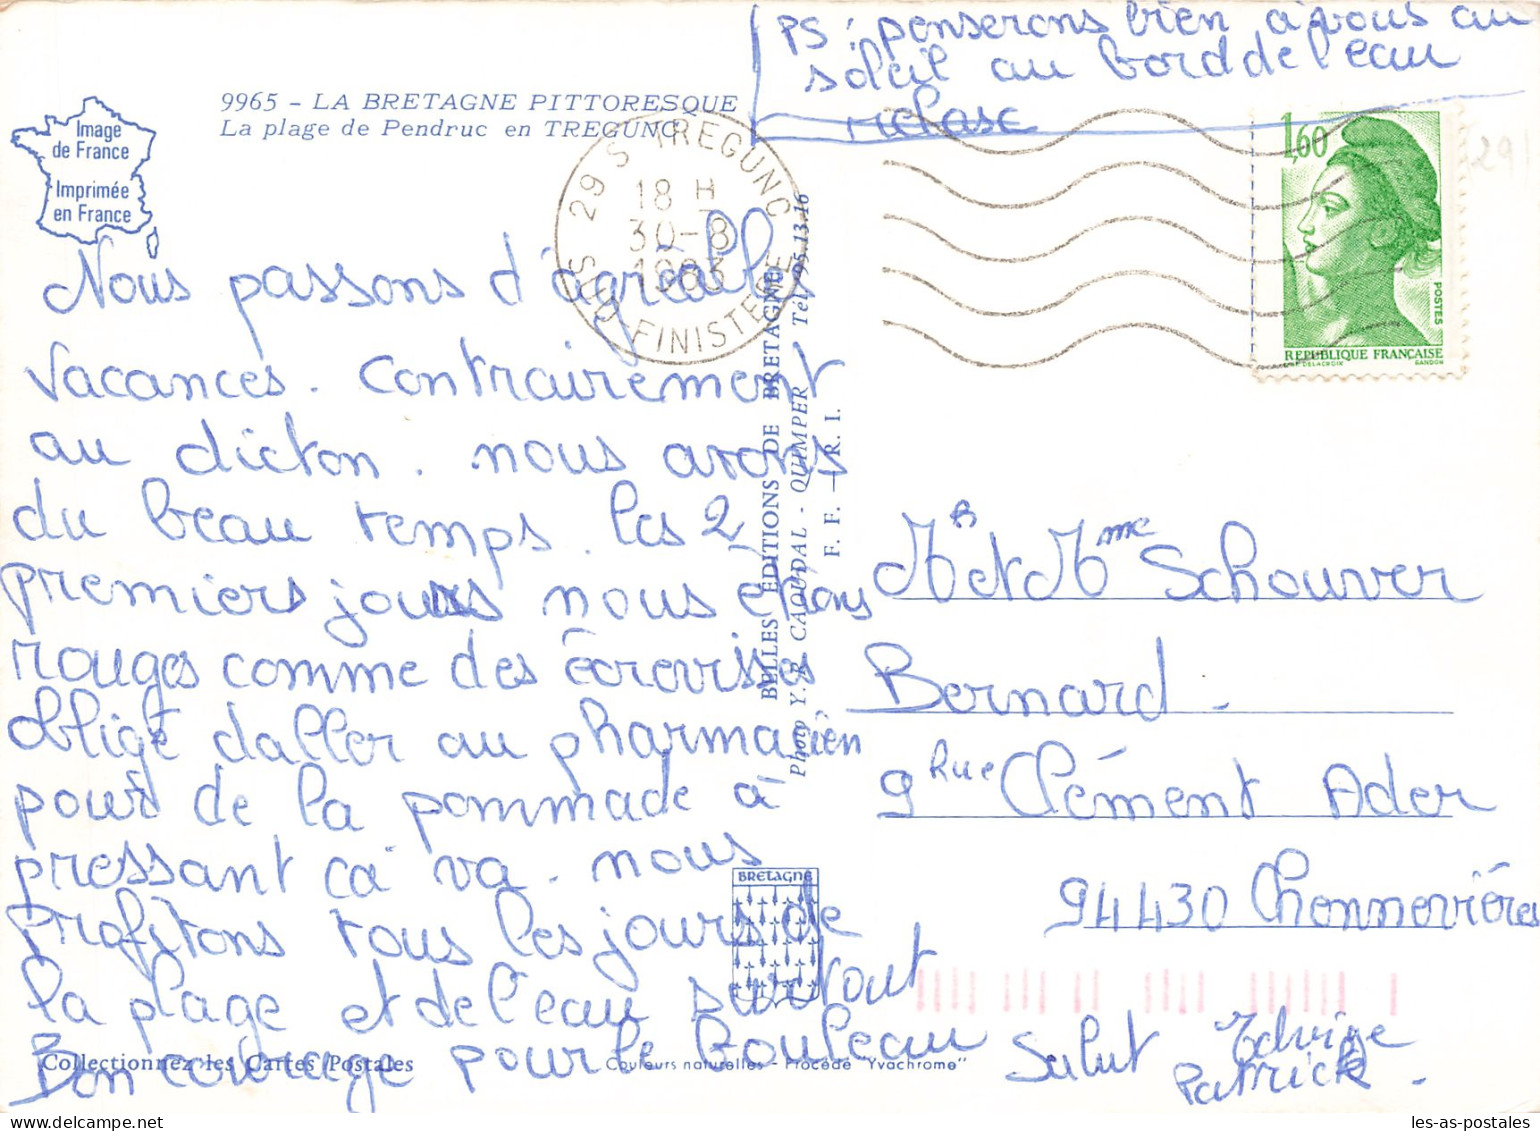 PS : penserons bien à vous au
soleil au bord de l'eau
relase
9965 - LA BRETAGNE PITTORESQUE
La plage de Pendruc en TREGUNC
Image
de France
Imprimée
en France
29 S TREGUNC
18 H
30-8
1983
SUD-FINISTERE
1,60
POSTES
REPUBLIQUE FRANÇAISE
D'AP. DELACROIX GANDON
29
Nous passons d'agréables
vacances. Contrairement
au dicton. nous avons
du beau temps. les 2
premiers jours nous étions
rouges comme des écrevisses
obligé daller au pharmacien
pour de la pommade à
pressant ca va. nous
Profitons tous les jours de
la plage et de l'eau surtout
Bon courage pour le bouleau
Salut Edvige
Patrick.
BELLES EDITIONS DE BRETAGNE
Photo Y. R. CAOUDAL - QUIMPER Tél. 95-13-16
F. F. - R. I.
Mr et Mme Schouver
Bernard.
9 Rue Clément Ader
94430 Chennevières
BRETAGNE
Collectionnez les Cartes Postales
Couleurs naturelles - Procédé "Yvachrome"
les-as-postales.com